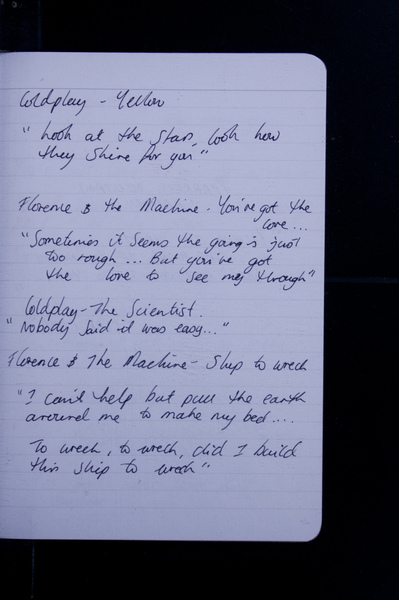 Coldplay - Yellow
"Look at the stars, look how
they shine for you"
Florence & the Machine - You've got the
love...
"Sometimes it seems the going is just
too rough... But you've got
the love to see me through"
Coldplay - The Scientist.
"Nobody said it was easy..."
Florence & The Machine - Ship to wreck
"I can't help but pull the earth
around me to make my bed....
To wreck, to wreck, did I build
this ship to wreck"